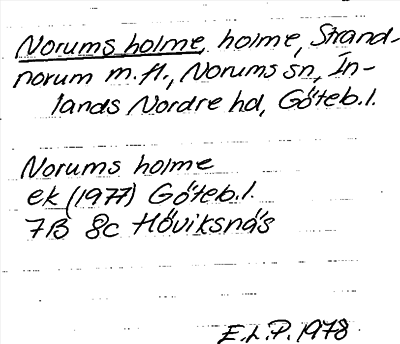 Norums holme, holme, Strand-
norum m.fl., Norums sn, In-
lands Nordre hd, Göteb.l.
Norums holme
ek (1977) Göteb.l.
7B 8c Höviksnäs
E.L.P. 1978